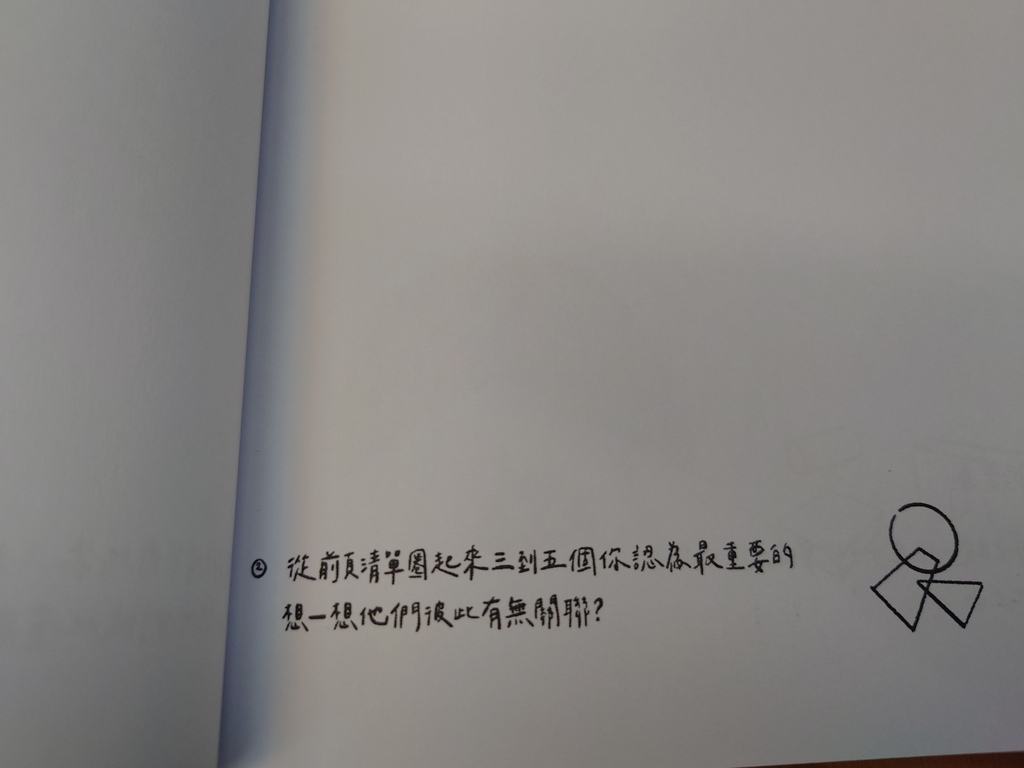 ② 從前頁清單圈起來三到五個你認為最重要的
想一想他們彼此有無關聯?